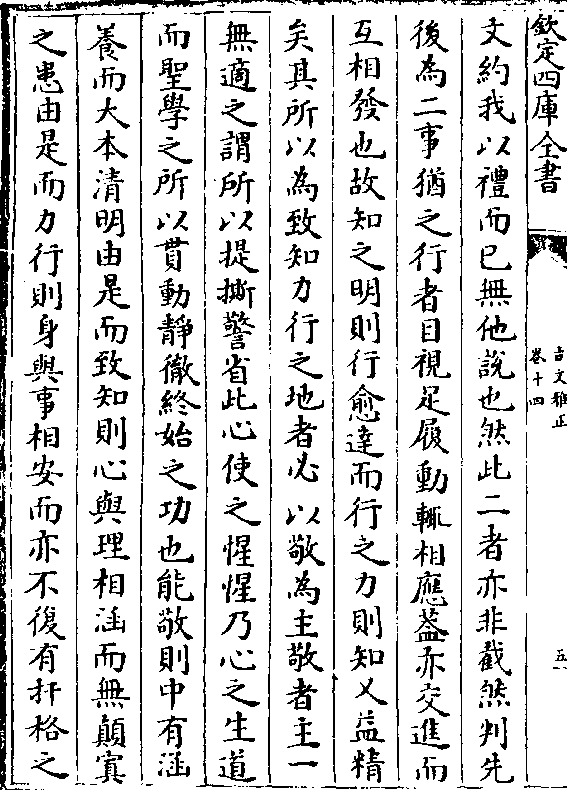 欽定四庫全書
古文雅正
卷十四
五
文約我以禮而已無他説也然此二者亦非截然判先
後為二事猶之行者目視足履動輒相應蓋亦交進而
互相發也故知之明則行愈達而行之力則知又益精
矣其所以為致知力行之地者必以敬為主敬者主一
無適之謂所以提撕警省此心使之惺惺乃心之生道
而聖學之所以貫動靜徹終始之功也能敬則中有涵
養而大本清明由是而致知則心與理相涵而無顛㝠
之患由是而力行則身與事相安而亦不復有扞格之